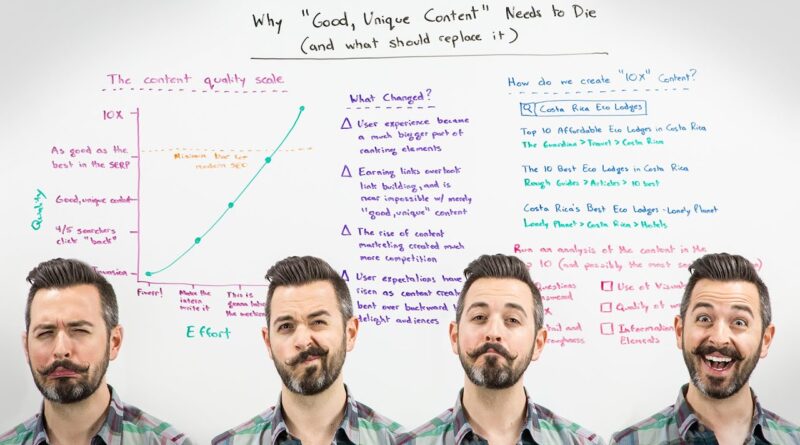 Why "Good, Unique Content" Needs to Die
(and what should replace it)
The content quality scale
10X
As good as the
best in the SERP
Good, unique content
4/5 searchers
click "back"
Quality
Fiverr!
Make the
intern
write it
This is
gonna take
the weekend
Effort
What Changed?
User experience became
a much bigger part of
ranking elements
Earning links overtook
link building, and is
near impossible w/ merely
"good, unique" content
The rise of content
marketing created much
more competition
User expectations have
risen as content
bent over backward
delight audiences
How do we create "10X" Content?
Costa Rica Eco Lodges
Top 10 Affordable Eco Lodges in Costa Rica
The Guardian > Travel > Costa Rica
The 10 Best Eco Lodges in Costa Rica
Rough Guides > Articles > 10 best
Costa Rica's Best Eco Lodges - Lonely Planet
Lonely Planet > Costa Rica > Hotels
Run an analysis of the content in the
10 (and possibly the most
Use of
Quality of
Information
Elements